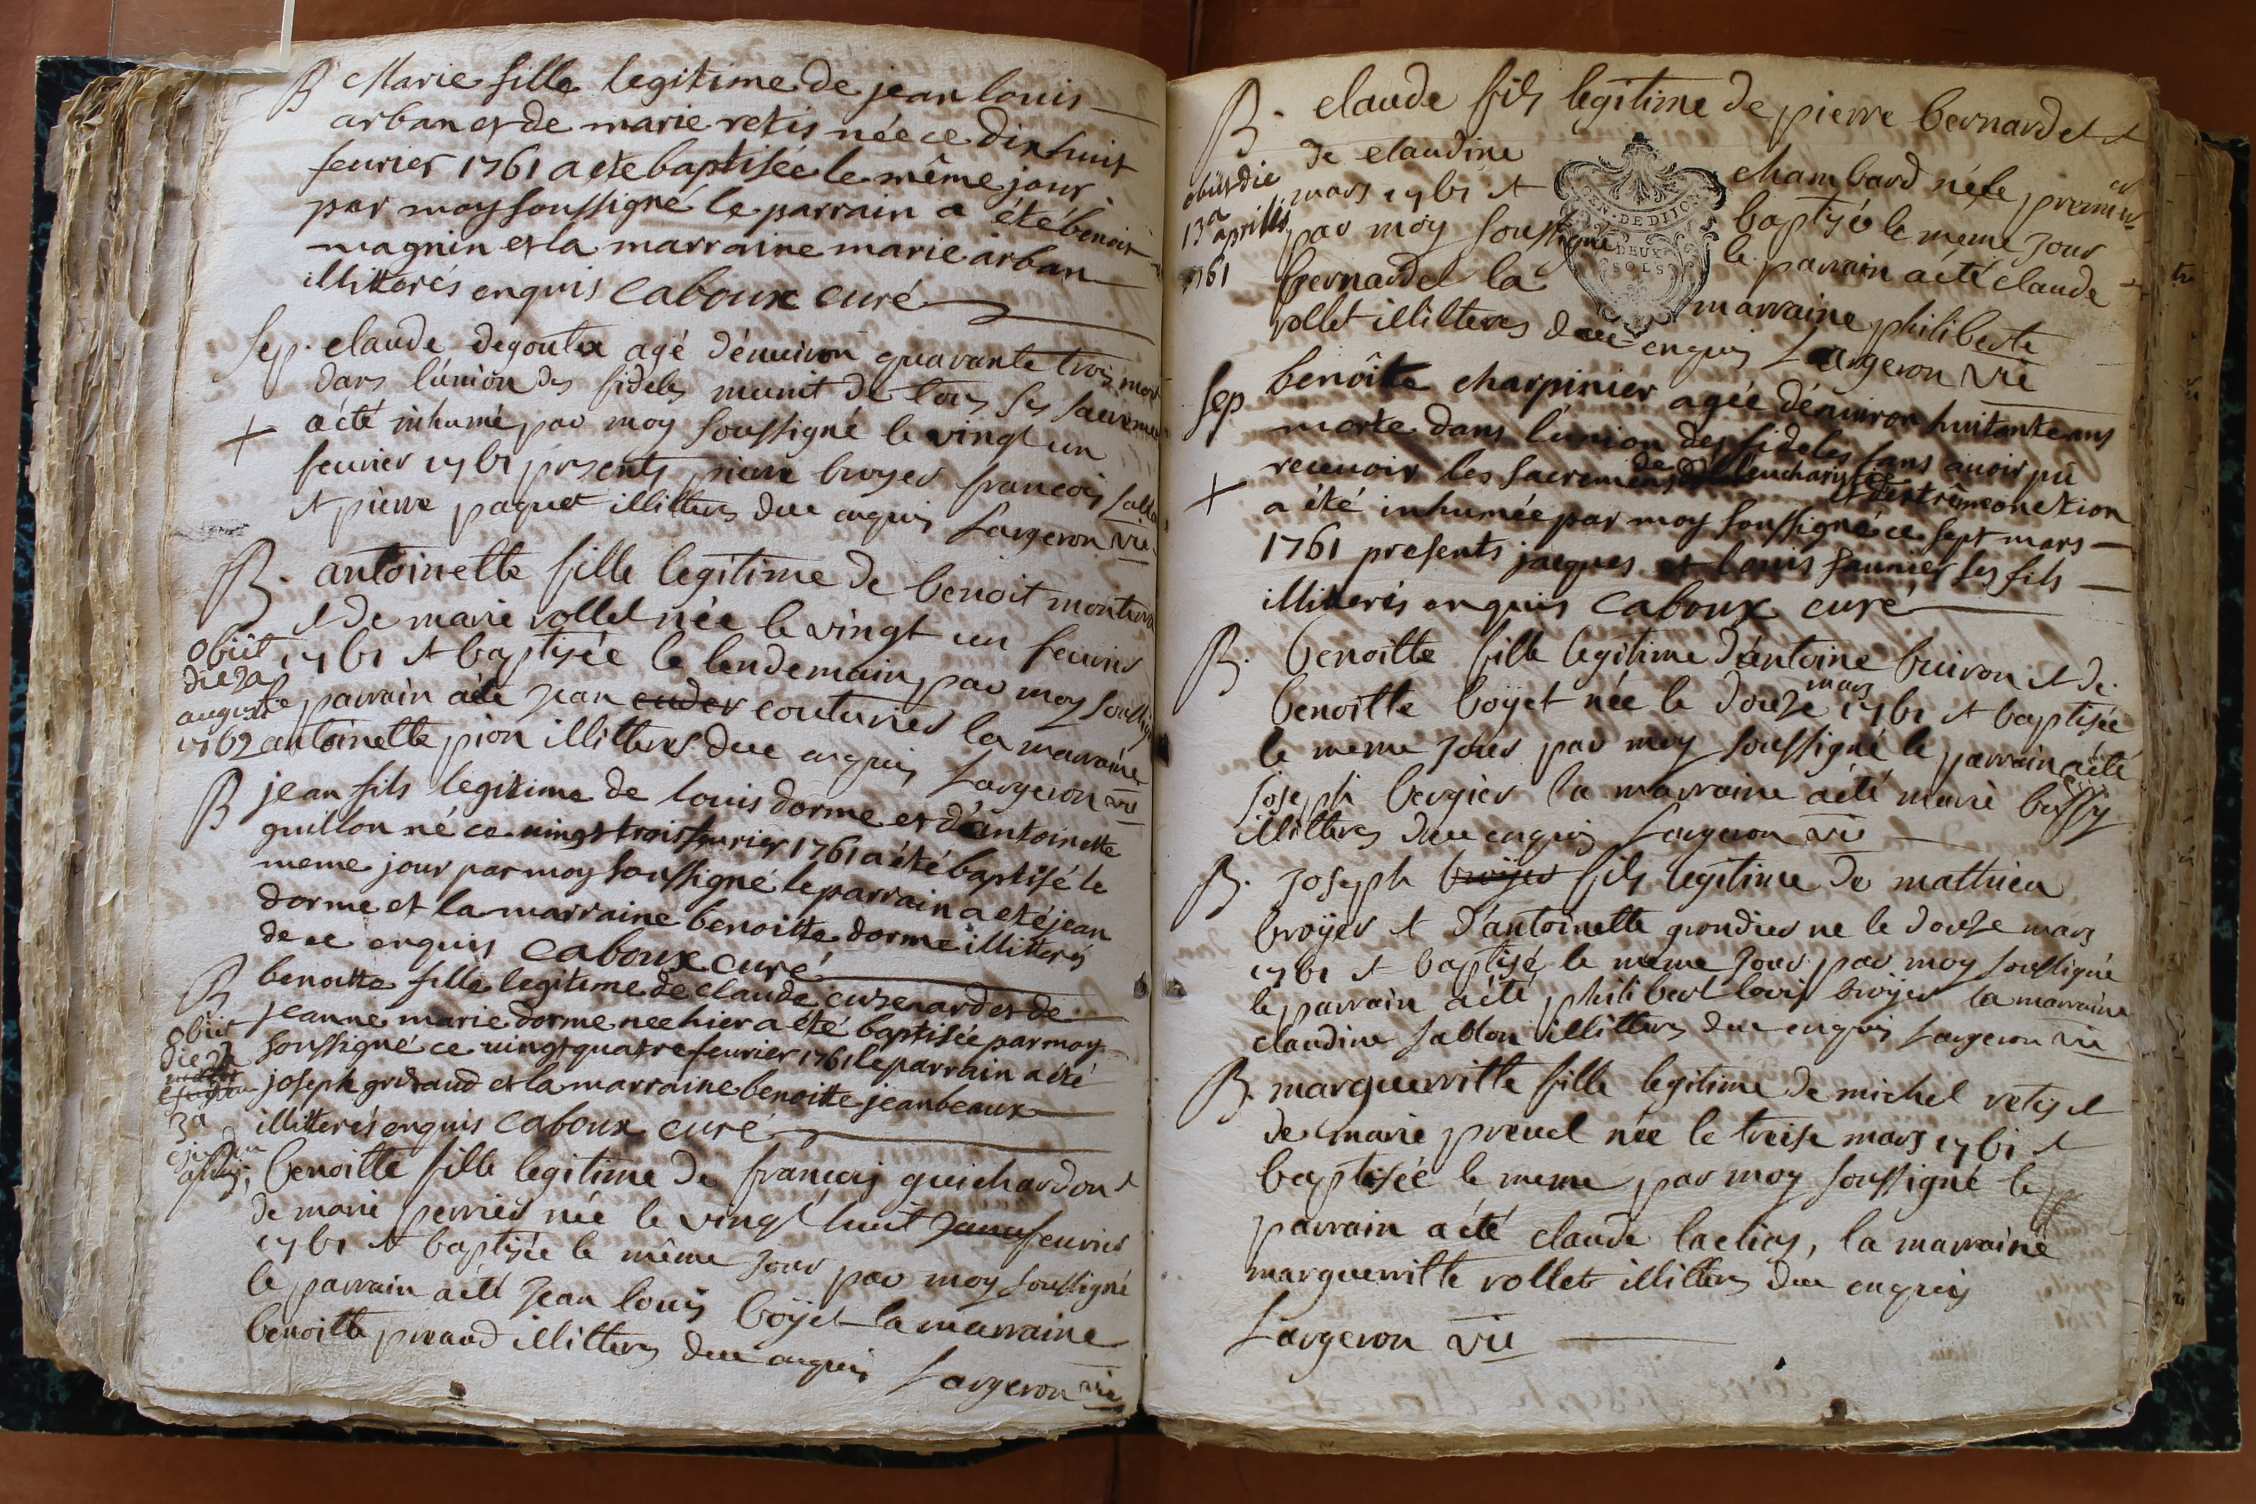 B Marie fille legitime de jean louis
arban et de marie retis née ce dix huit
feurier 1761 a eté baptisée le même jour
par moy soussigné le parrain a été benoit
magnin et la marraine marie arban
illitterés enquis Caboux curé
Sep. claude degoutte agé d'énuiron quarante trois mort
dans l'union des fideles munit de tous ses sacremen
+ a été inhumé par moy soussigné le vingt un
feurier 1761 presents pierre broyer francois sablon
et pierre paquet illitteres due enquis Largeron vic
B. antoinette fille legitime de benoit
et de marie rollet née le vingt un feurier
1761 et baptisée le lendemain par moy soussigné
le parrain a été jean couturier la marraine
antoinette pion illitteres due enquis Largeron vic
obiit
die 2a
augusti
1762
B jean fils legitime de louis dorme et d'antoinette
guillon né ce uingt trois feurier 1761 a été baptisé le
meme jour par moy soussigné le parrain a eté jean
dorme et la marraine benoitte dorme illitterés
de ce enquis Caboux curé
B benoitte fille legitime de claude cuzenard et de
jeanne marie dorme nee hier a été baptisée par moy
soussigné ce uingt quatre feurier 1761 le parrain a eté
joseph grizaud et la marraine benoitte jeanbeaux
illitterés enquis Caboux curé
obiit
die
3a
benoitte fille legitime de françois guichardon et
de marie perrier née le vingt huit feurier
1761 et baptisée le même jour par moy soussigné
le parrain a été jean louis boÿet la marraine
benoitte preaud illitteres due enquis Largeron vic
B. claude fils legitime de pierre bernardet et
de claudine chambard né le premier
mars 1761 et baptisé le meme jour
par moy soussigné le parrain a été claude
bernardet la marraine philiberte
rollet illitteres due enquis Largeron vic
obiit die
13a
aprilis
1761
GEN. DE DIJON
DEUX
SOLS
Sep benoîte charpinier agée d'énuiron huitante ans
morte dans l'union des fideles sans auoir pû
+ receuoir les sacremens de l'eucharistie
et d'extrême onction
a été inhumée par moy soussigné ce sept mars
1761 presents jacques et louis saunier ses fils
illitterés enquis Caboux curé
B. benoitte fille legitime d'antoine buiron et de
benoitte boÿet née le douze mars 1761 et baptisée
le meme jour par moy soussigné le parrain a été
joseph bergier la marraine a été marie bussy
illitteres due enquis Largeron vic
B. joseph broÿer fils legitime de mathieu
broÿer et d'antoinette grondier ne le douze mars
1761 et baptisé le meme jour par moy soussigné
le parrain a été philibert louis broÿer la marraine
claudine sablon illitteres due enquis Largeron vic
B. marguerritte fille legitime de michel retis et
de marie preud née le treise mars 1761 et
baptisée le meme par moy soussigné le
parrain a été claude laclias, la marraine
marguerritte rollet illitteres due enquis
Largeron vic